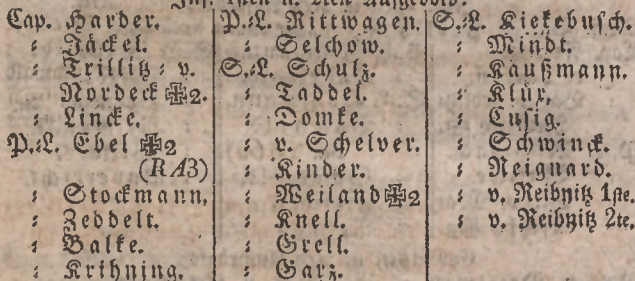 Inf. 1sten u. 2ten Aufgebots.
Cap. Harder.
: Jäckel.
: Trillitz : v.
Nordeck ✠2.
: Lincke.
P.:L. Ebel ✠2
(RA3)
: Stockmann.
: Zeddelt.
: Balke.
: Krihning.
P.:L. Rittwagen.
: Selchow.
S.:L. Schulz.
: Taddel.
: Domke.
: v. Schelver.
: Kinder.
: Weiland ✠2
: Knell.
: Grell.
: Garz.
S.:L. Kiekebusch.
: Mindt.
: Kaußmann.
: Klüx.
: Cusig.
: Schwinck.
: Reignard.
: v. Reibnitz 1ste.
: v. Reibnitz 2te.